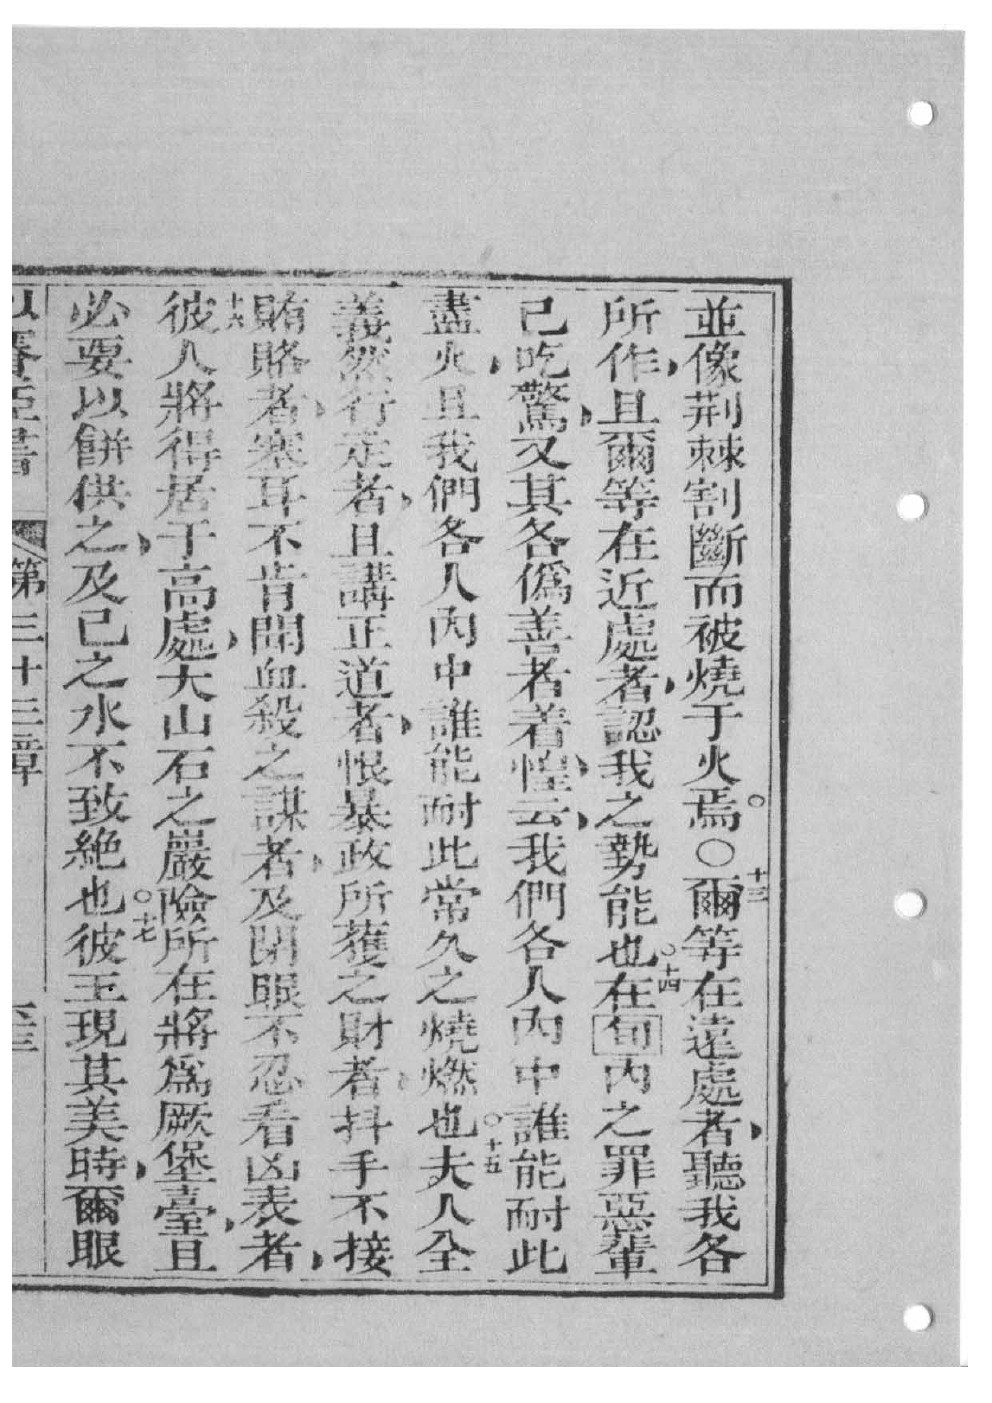 並像荆棘割斷而被燒于火焉。〇十三爾等在遠處者、聽我各
所作、且爾等在近處者、認我之勢能也。十四在旬內之罪惡輩
己吃驚、又其各僞善者着惶、云、我們各人內中誰能耐此
盡火、且我們各人內中誰能耐此常久之燒燃也。十五夫人全
義然行走者、且講正道者、恨暴政所獲之財者、抖手不接
賄賂者、塞耳不肯聞血殺之謀者、及閉眼不忍看凶表者、
十六彼人將得居于高處、大山石之巖險所在將爲厥堡臺、且
必要以餅供之、及已之水不致絕也。十七彼王現其美時、爾眼
以賽亞書 第三十三章